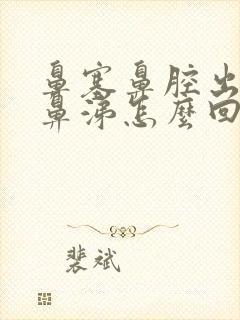 鼻塞鼻腔出
鼻涕怎麼回
裴斌